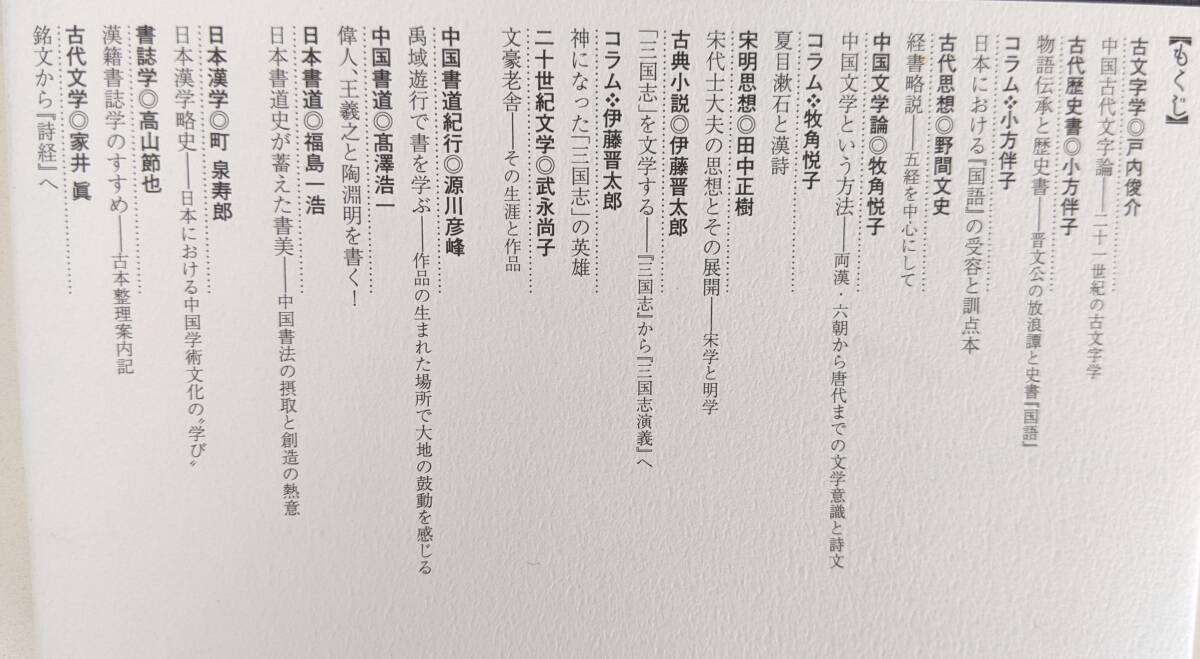 【もくじ】
古文字学◎戸内俊介
中国古代文字論――二十一世紀の古文字学
古代歴史書◎小方伴子
物語伝承と歴史書――晋文公の放浪譚と史書『国語』
コラム❖小方伴子
日本における『国語』の受容と訓点本
古代思想◎野間文史
経書略説――五経を中心にして
中国文学論◎牧角悦子
中国文学という方法――両漢・六朝から唐代までの文学意識と詩文
コラム❖牧角悦子
夏目漱石と漢詩
宋明思想◎田中正樹
宋代士大夫の思想とその展開――宋学と明学
古典小説◎伊藤晋太郎
「三国志」を文学する――『三国志』から『三国志演義』へ
コラム❖伊藤晋太郎
神になった「三国志」の英雄
二十世紀文学◎武永尚子
文豪老舎――その生涯と作品
中国書道紀行◎源川彦峰
禹域遊行で書を学ぶ――作品の生まれた場所で大地の鼓動を感じる
中国書道◎髙澤浩一
偉人、王羲之と陶淵明を書く！
日本書道◎福島一浩
日本書道史が蓄えた書美――中国書法の摂取と創造の熱意
日本漢学◎町 泉寿郎
日本漢学略史――日本における中国学術文化の〝学び〟
書誌学◎高山節也
漢籍書誌学のすすめ――古本整理案内記
古代文学◎家井 眞
銘文から『詩経』へ